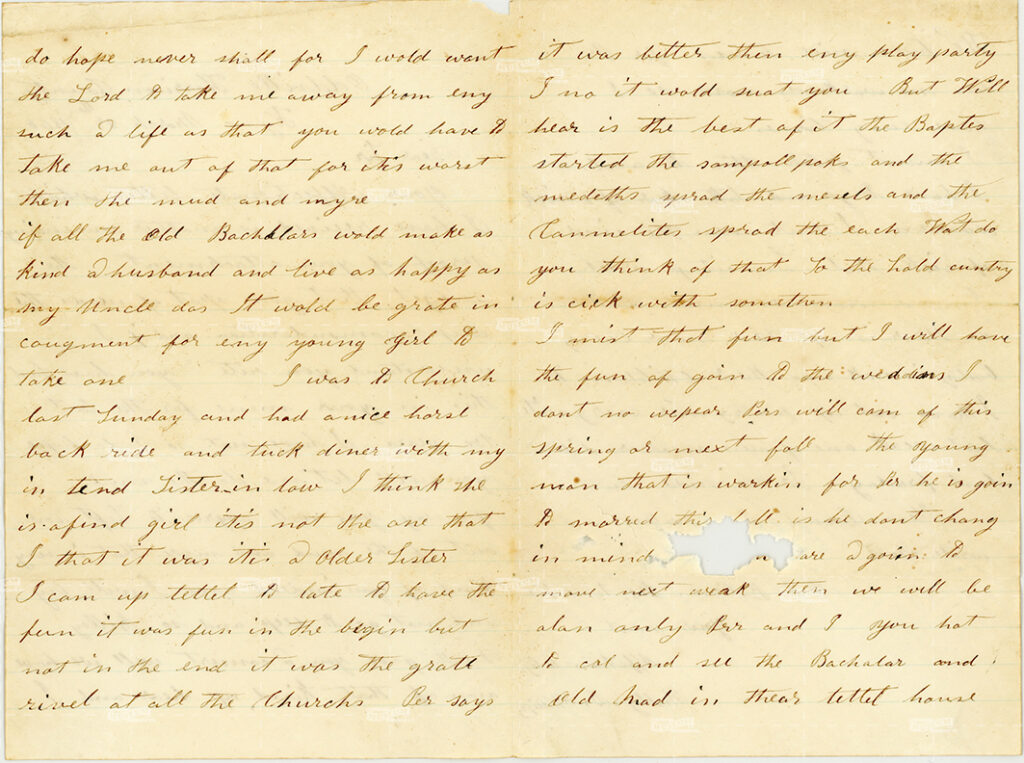 do hope never shall for I wold want
the Lord to take me away from eny
such a life as that you wold have to
take me out of that for itis warst
then the mud and myre
if all the Old Bachalars wold make as
kind a husband and live as happy as
my Uncle das It wold be grate in
cougment for eny young girl to
take one I was to Church
last Sunday and had a nice horsl
back ride and tuck diner with my
in tend Sister in law I think she
is a find girl itis not the one that
I that it was itis a Older Sister
I cam up tettel to late to have the
fun it was fun in the begin but
not in the end it was the grate
rivel at all the Churchs Per says
it was better then eny play party
I no it wold suat you But Will
hear is the best of it the Baptes
started the sampoll poks and the
medeths sprad the mesels and the
Canmelites spread the each Wat do
you think of that To the hald cuntry
is cick with somethen
I mist that fun but I will have
the fun of goin to the weddins I
dont no wepear Pers will cam of this
spring or next fall the young
man that is warkin for Per he is goin
to marred this fall is he dont chang
in mind are a goin to
move next weak then we will be
alan only Perr and I you hat
to cal and see the Bachalar and
Old Mad in thear tettel house